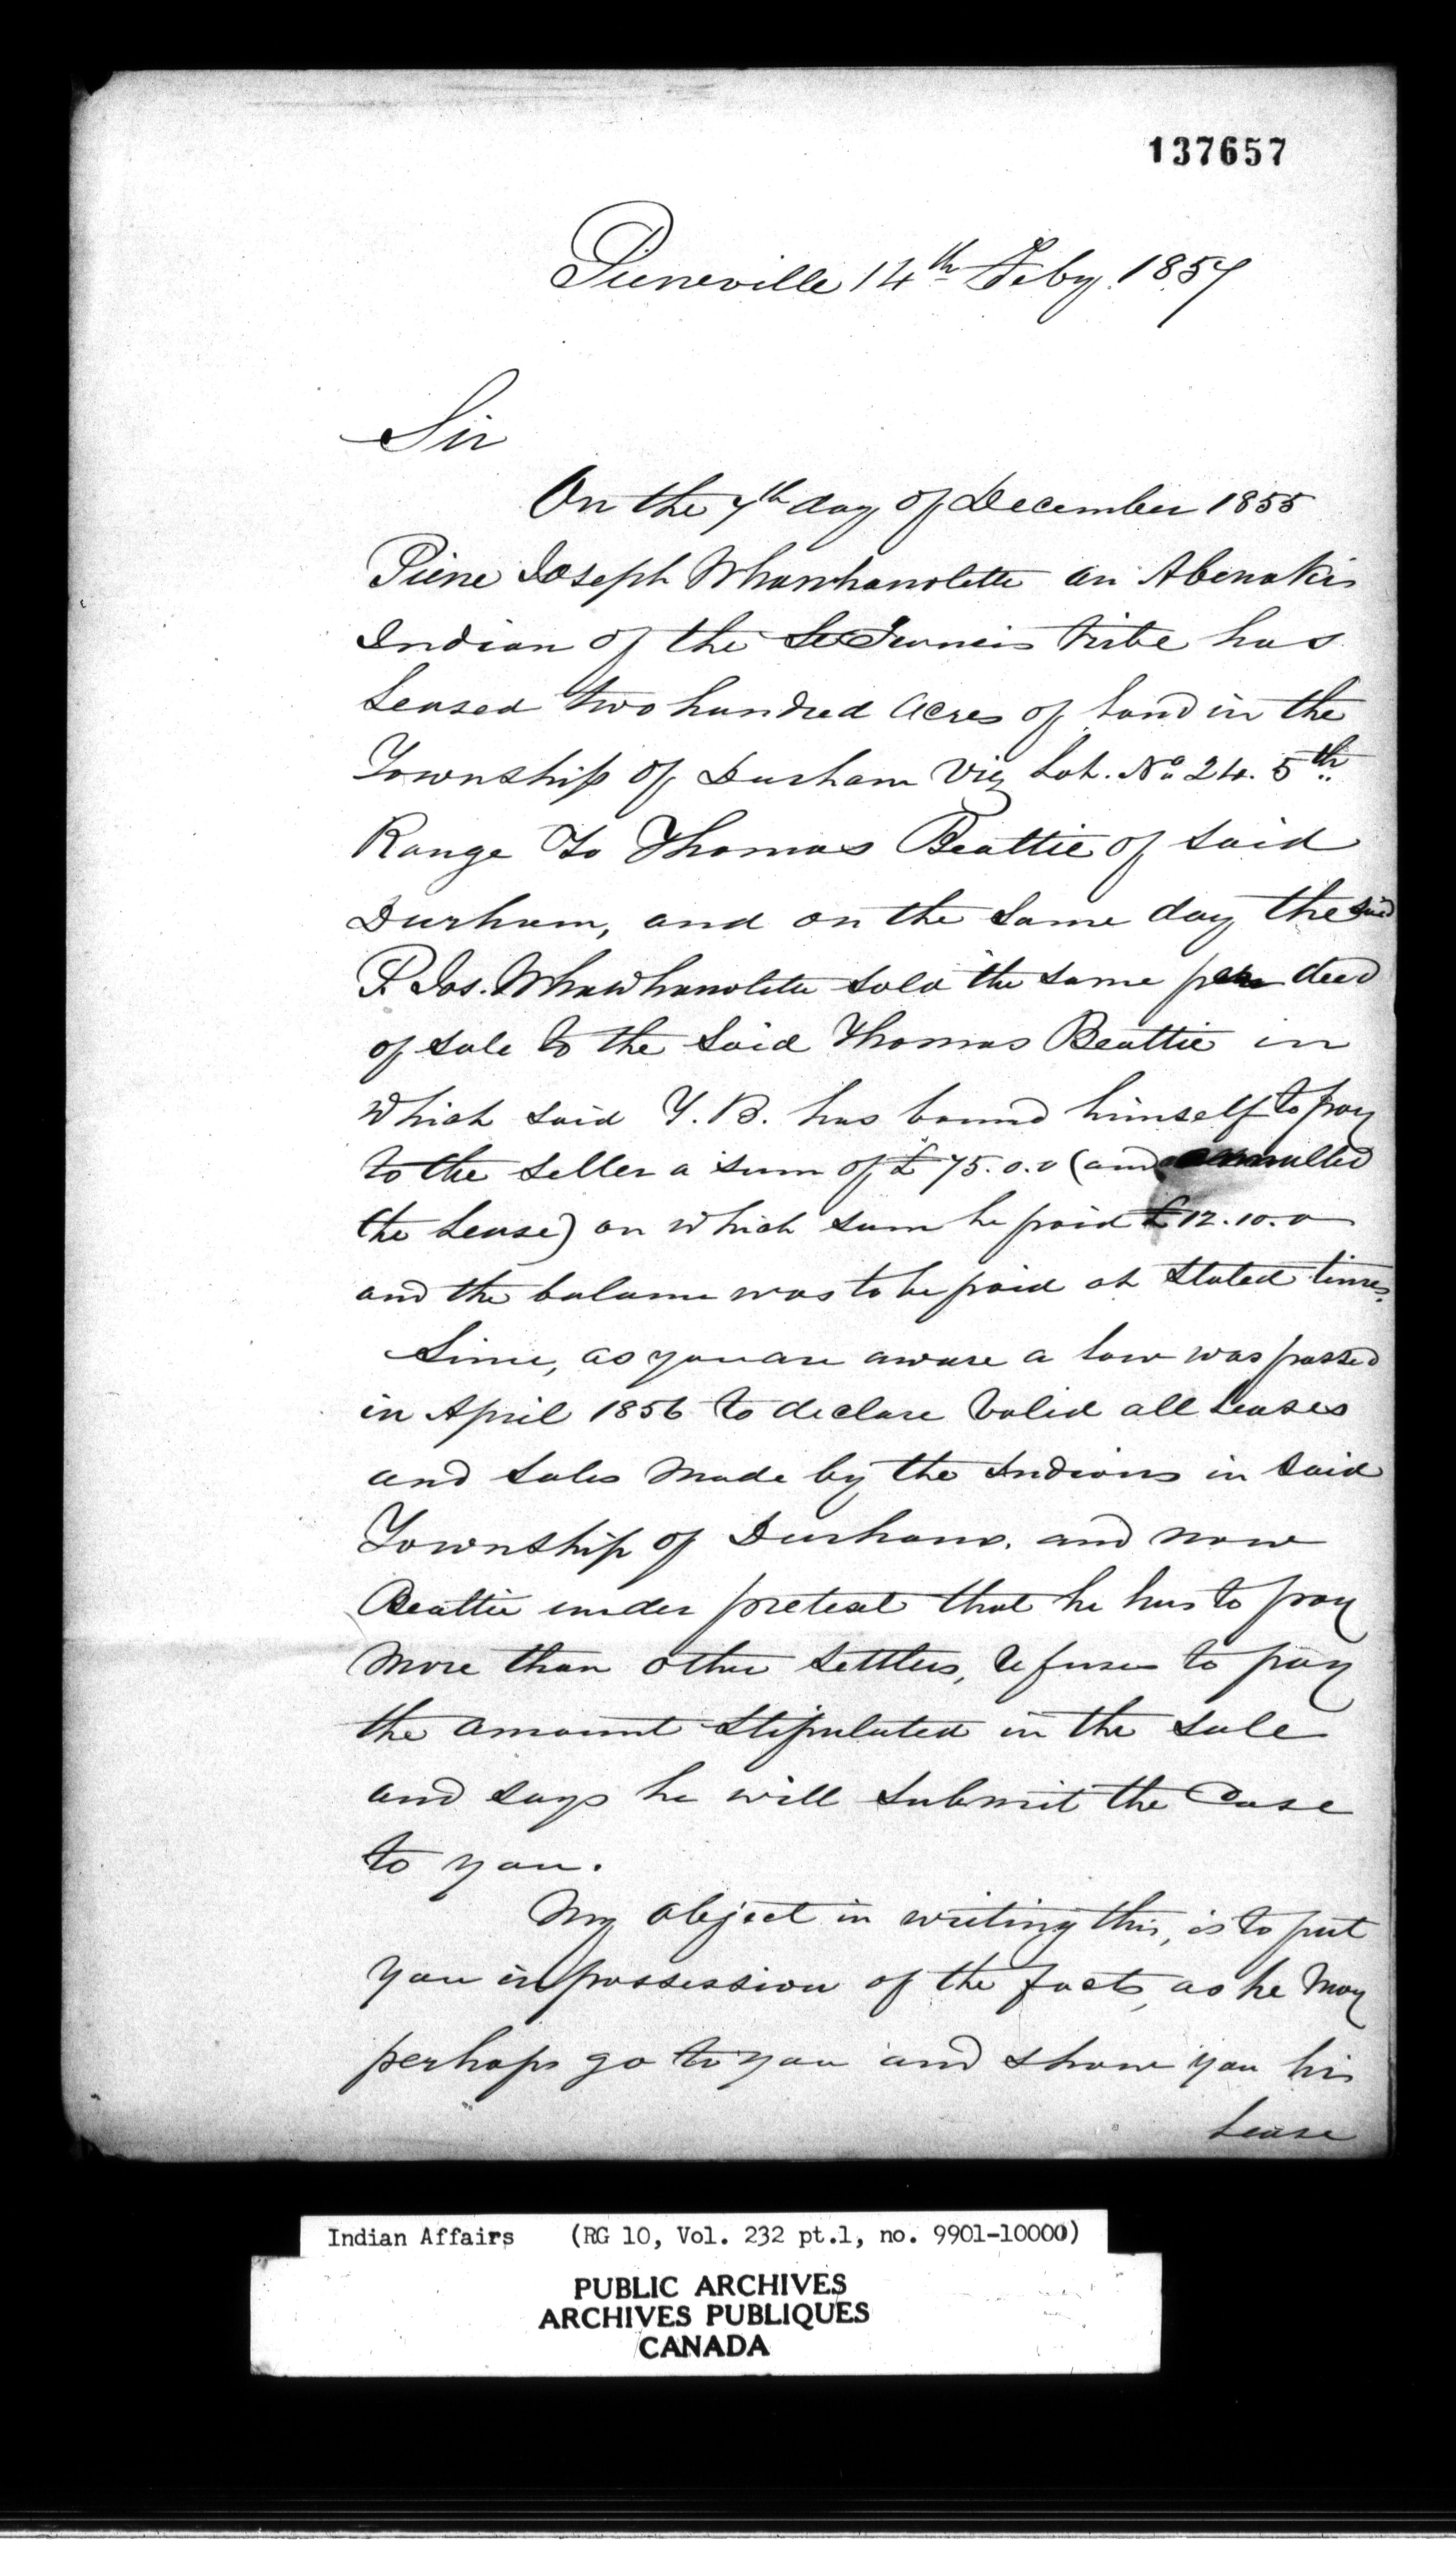 137657
Pierreville 14th Feby. 1857
Sir
On the 7th day of December 1855
Pierre Joseph Whawhanolette an Abenakis
Indian of the St Francis tribe has
Leased two hundred acres of land in the
Township of Durham Viz Lot. No. 24. 5th
Range To Thomas Beattie of said
Durham, and on the same day the said
P. Jos. Whawhanolette sold the same per deed
of sale to the said Thomas Beattie in
which said T. B. has bound himself to pay
to the seller a sum of £75.0.0 (and annulled
the Lease) on which sum he paid £12.10.0
and the balance was to be paid at stated times.
Since, as you are aware a law was passed
in April 1856 to declare valid all leases
and sales made by the Indians in said
Township of Durham. and now
Beattie under pretext that he has to pay
more than other settlers, refuses to pay
the amount stipulated in the sale
and says he will submit the Case
to you.
My object in writing this, is to put
you in possession of the facts, as he may
perhaps go to you and show you his
Lease
Indian Affairs (RG 10, Vol. 232 pt.1, no. 9901-10000)
PUBLIC ARCHIVES
ARCHIVES PUBLIQUES
CANADA